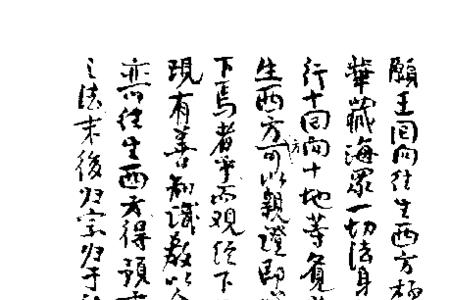 願王回向往生西方極
華藏海眾一切法身
行十回向十地等覺
生西方可以親證即
下焉者乎而觀經下
現有善知識教以念
亦可往生西方得預
之法末後归宗归于